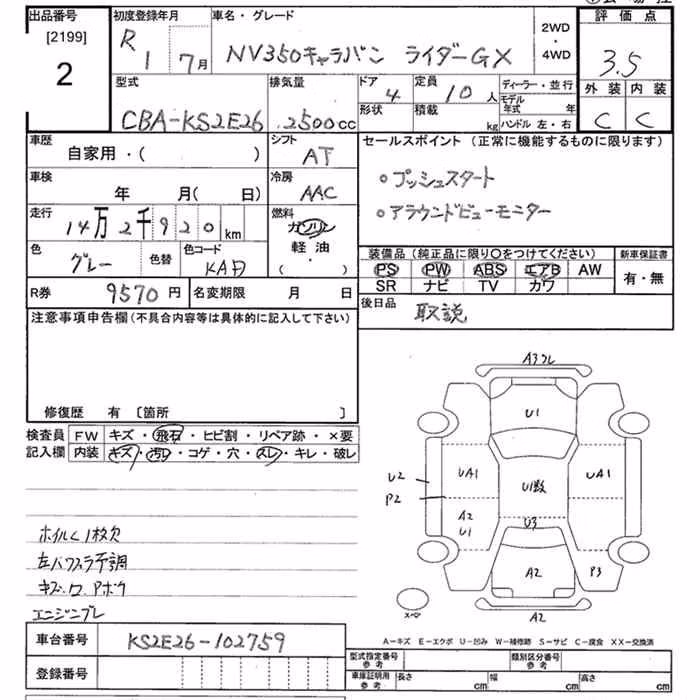 出品番号 [2199] 2
初度登録年月 R 1 7月
車名・グレード NV350キャラバン ライダーGX
2WD・4WD
評価点 3.5
外装 C 内装 C
型式 CBA-KS2E26
排気量 2500cc
ドア 4 形状
定員 10人 積載 kg
ディーラー・並行
モデル年式 年
ハンドル 左・右
車歴 自家用・( )
シフト AT
車検 年 月(日)
冷房 AAC
走行 14万2千920km
燃料 ガソリン 軽油・( )
色 グレー 色替 色コード KAD
R券 9570円 名変期限 月 日
セールスポイント(正常に機能するものに限ります)
○プッシュスタート
○アラウンドビューモニター
装備品(純正品に限り○をつけてください) 新車保証書
PS PW ABS エアB AW 有・無
SR ナビ TV カワ
後日品 取説
注意事項申告欄(不具合内容等は具体的に記入して下さい)
修復歴 有 〔箇所 〕
検査員記入欄
FW キズ・飛石・ヒビ割・リペア跡・×要
内装 キズ・汚レ・コゲ・穴・スレ・キレ・破レ
ホイルC1枚欠
左バックスラ不調
キズ.ワ.Aボク
エンジンブレ
A3フレ
U1
U2 UA1 U1数 UA1
P2
A2 U1 U3
A2 P3
A2
A-キズ E-エクボ U-凹み W-補修跡 S-サビ C-腐食 XX-交換済
車台番号 KS2E26-102759
登録番号
型式指定番号 参考 類別区分番号 参考
車庫証明用 参考 長さ cm 幅 cm 高さ cm